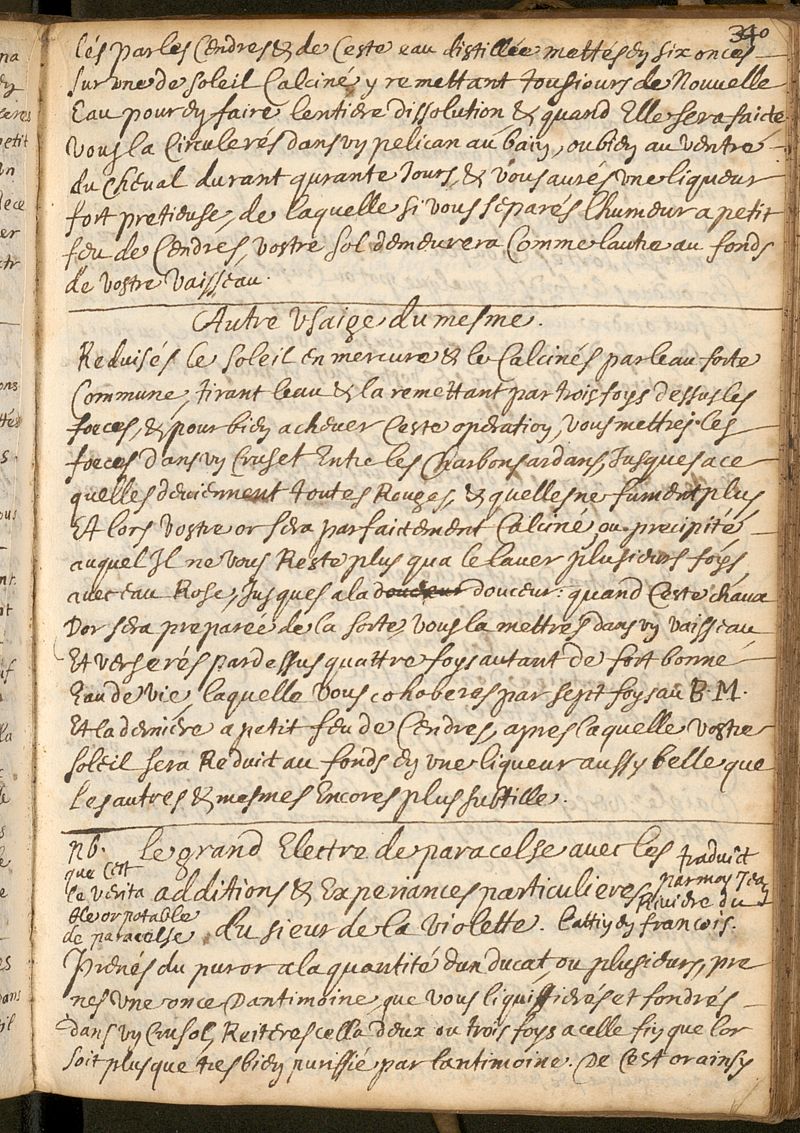 340
lés par les Cendres & de Ceste eau distillée mettés en six onces
sur une de soleil Calciné y remettant tousiours de Nouvelle
Eau pour en faire lentiere dissolution & quand Elle sera faicte
vous la Circulerés dans un pelican au bain, ou bien au ventre
du Cheval durant qurante Jours, & vous aurés une liqueur
fort pretieuse, de laquelle si vous séparés lhumeur a petit
feu de Cendres, vostre sol demeurera Comme lautre au fonds
de vostre vaisseau.
Autre Usaige du mesme.
Reduisés le soleil en mercure & le Calcinés par leau forte
Commune, tirant leau & la remettant par trois foys dessus les
foeces, & pour bien achever Ceste operation, vous mettrés les
foeces dans un Cruset Entre les Charbons ardans, Jusques a ce
quelles deviennent toutes Rouges, & quelles ne fument plus
Et lors vostre or sera parfaictement Calciné, ou precipité
auquel Il ne vous Reste plus qua le laver plusieurs foys
avec eau Rose, Jusques a la douceur douceur: quand Ceste chaux
Dor sera preparée de la sorte, vous la mettres dans un vaisseau
Et verserés par dessus quattre foys autant de fort bonne
Eau de vie, laquelle vous cohoberes par sept foys au B.M.
Et la derniére a petit feu de Cendres, apres laquelle vostre
soleil sera Reduict au fonds en une liqueur aussy belle que
les autres & mesmes Encores plus subtille.
nb. le grand Electre de paracelse avec les traduict
que Cest par moy Jean
le verita additions & Experiances particulieres Riviere du
ble or potable
de paracelse du sieur de la violette. lattin en francois.
Prenés du pur or a la quantité dun ducat ou plusieurs, pre
nes une once Dantimoine, que vous liquiffierés et fondrés
dans un Crusol, Reiteres cella deux ou trois foys a celle fin que lor
soit plus que tres bien puriffié par lantimoine. De Cest or ainsy